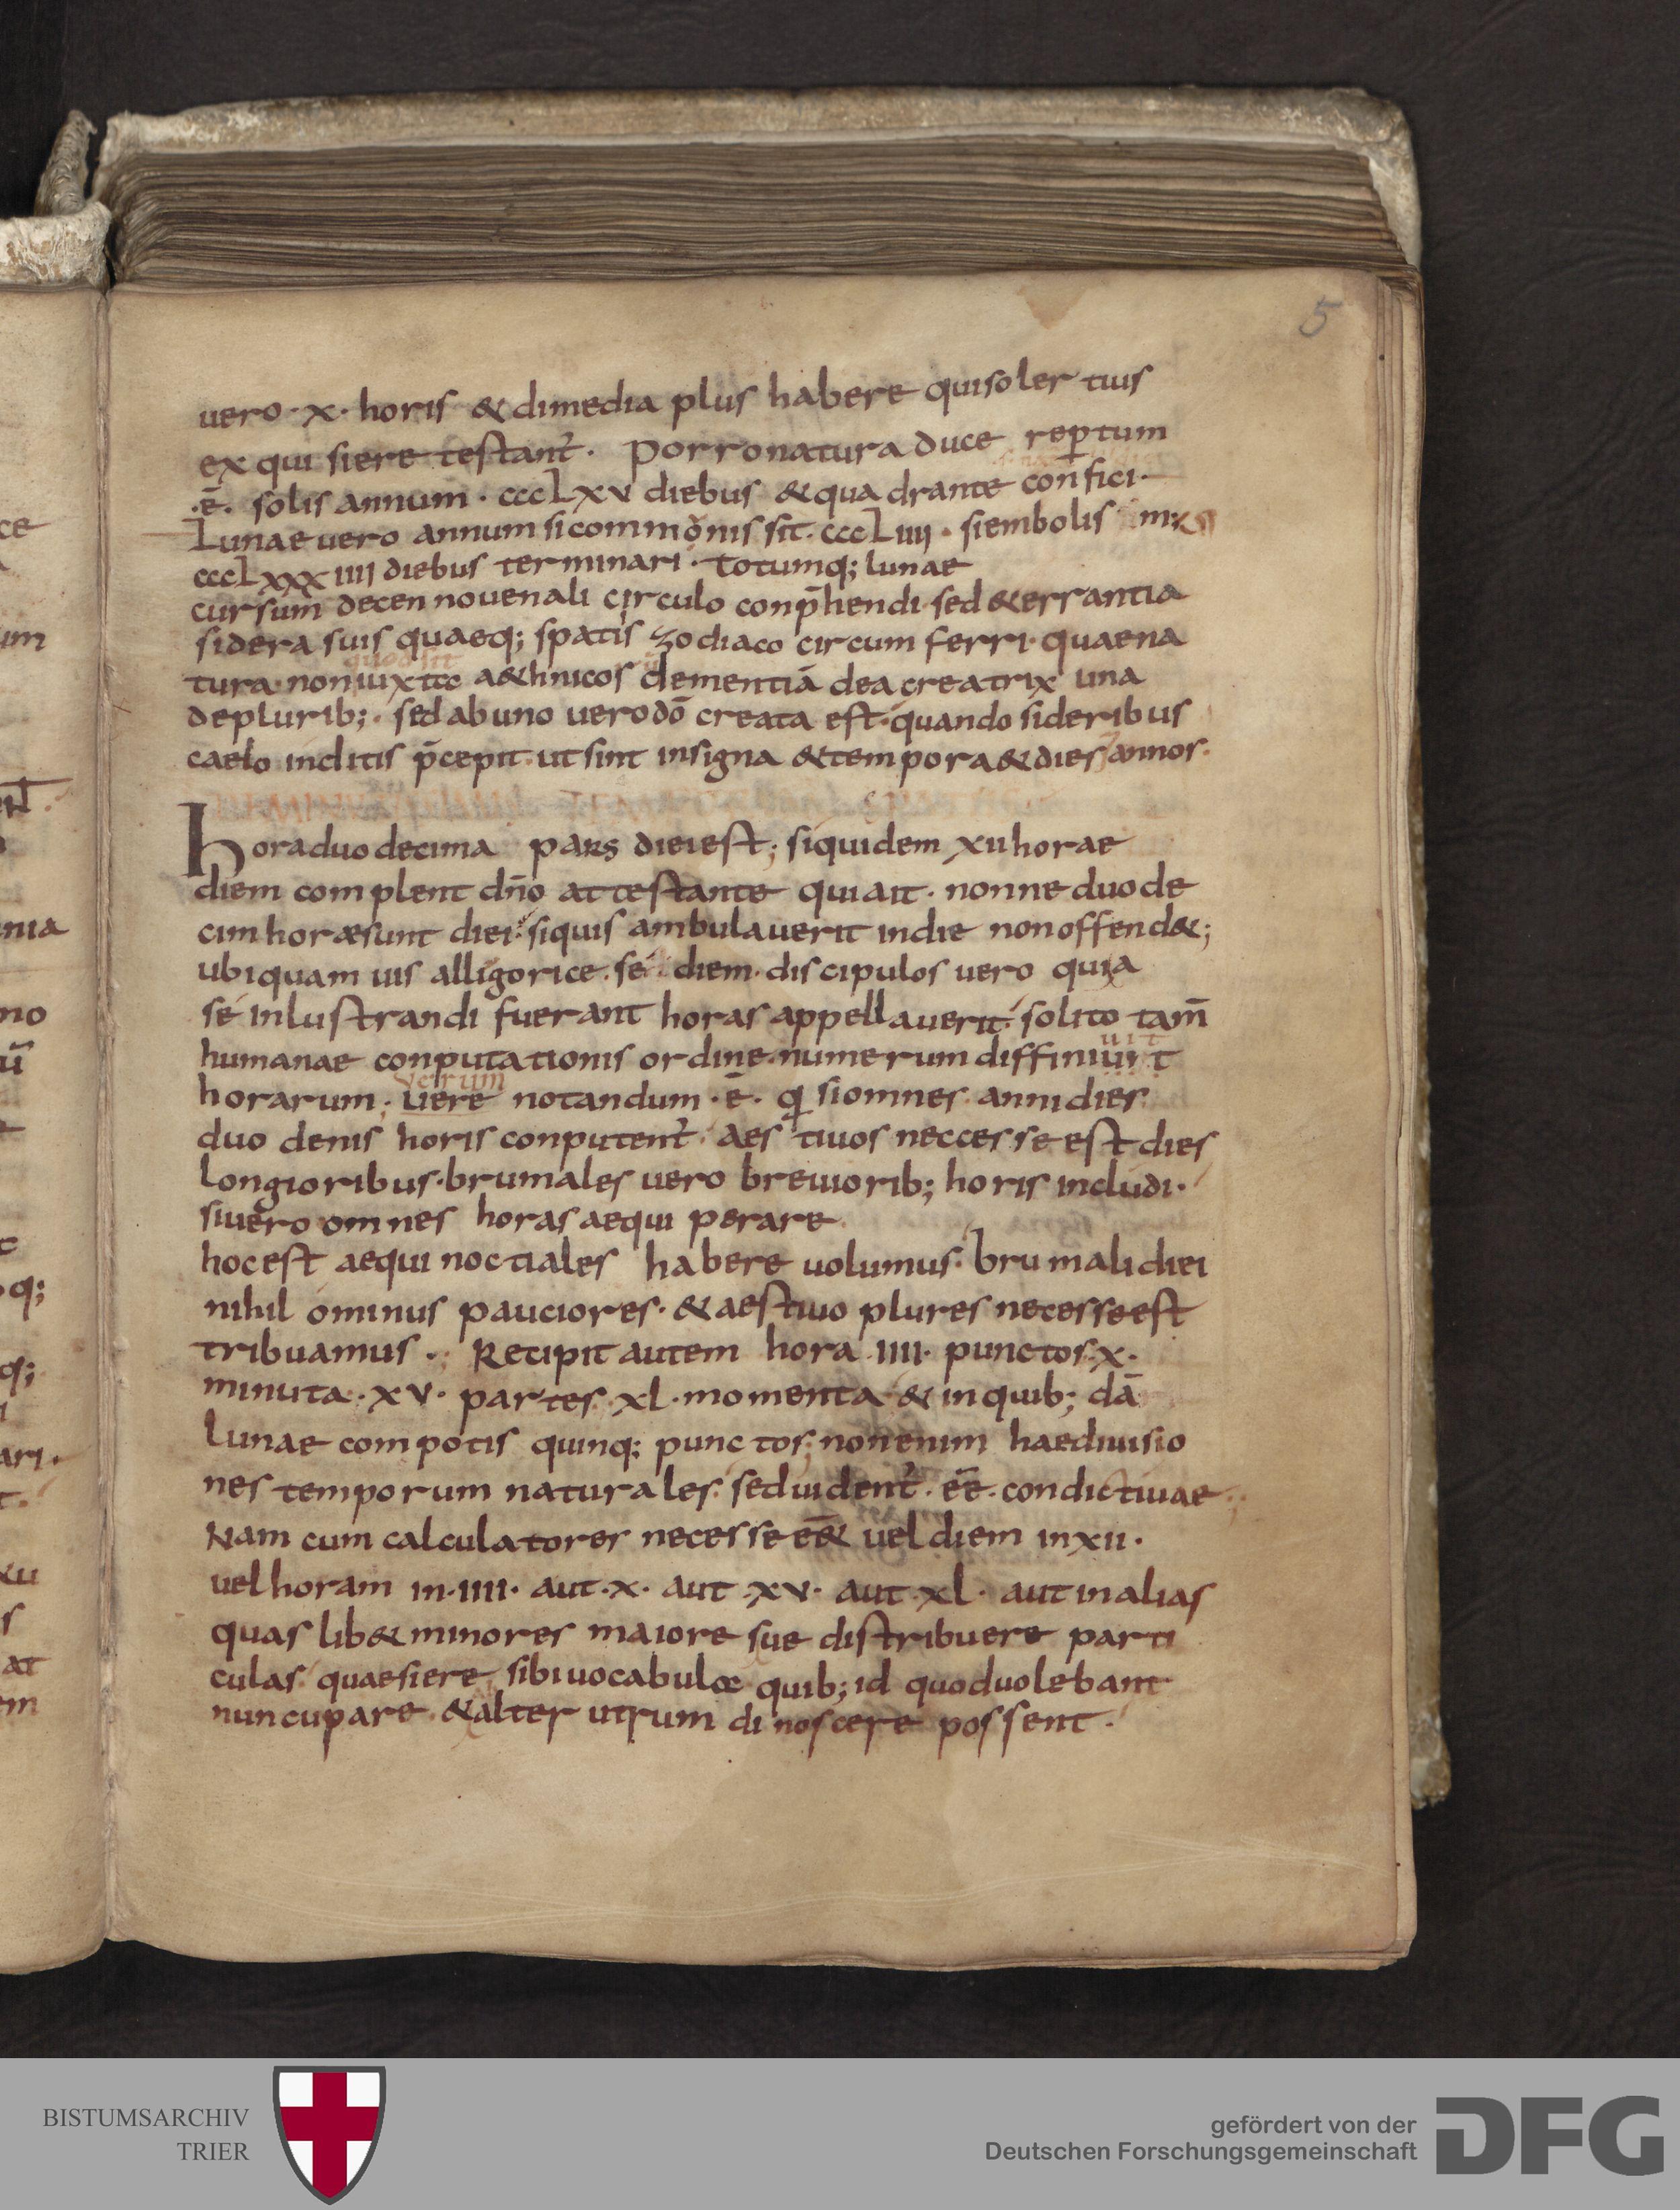 5
vero · x · horis & dimedia plus habere quisoler tius
ex qui siere testant᷑ . Porronatura duce rep̱tum
·ē· solis annum · cccLxv diebus & qua drante confici ·
Lunae uero annum si commōnis sit · cccLıııȷ · si embolis m:
cccLxxxıııȷ diebus terminari · totumq; lunae
cursum decen nouenali circulo conp̄hendi sed & errantia
sidera suis quaeq; spatis zodiaco circum ferri · quaena
quod sit
tura · non iuxtte a&hnicos dementiā dea creatrix una
deplurib; · sed ab uno uero dō creata est · quando sideribus
caelo inclitis p̄cepit · ut sint insigna & tempora & dies 7 annos ·
Hora duodecima pars diei est ; siquidem xıı horae
diem complent dn̄o attestante qui ait · nonne duode
cim horæ sunt diei · siquis ambulauerit indie non offend& ;
ubi quam uis alligorice · se diem · discipulos vero quia
sé inlustrandi fuerant horas appellauerit · solito tam̄
humanae conputationis ordine numerum diffiniuit
uit
verum
horarum · uere notandum · ē · q siomnes anni dies
duo denis horis conputent᷑ · Aes tiuos neccesse est dies
longioribus · brumales uero breuiorib; horis includi ·
siuero omnes horas aequi perare
hoc est aequi noctiales habere uolumus · brumali diei
nihil ominus pauciores · & aestiuo plures necesse est
tribuamus · Recipit autem hora ıııı · punctos · x ·
minuta · xv · partes · xl · momenta & in quib; dā
lunae compotis quinq; punctos ; non enim haediuisio
nes temporum naturales · sed uident᷑ · eē · condictiuae
Nam cum calculatores necesse eē& uel diem in xıı ·
uel horam in · ıııı · aut · x · aut · xv · aut · xl · aut in alias
quas lib& minores maiore sue distribuere parti
culas · quaesiere sibi uocabulæ quib; id quod uolebant
nuncupare · & alter utrum dinoscere possent ·
ce
um
nia
no
ū
q;
q;
ari ·
xu
s
at
em
BISTUMSARCHIV
TRIER
gefördert von der
Deutschen Forschungsgemeinschaft
DFG